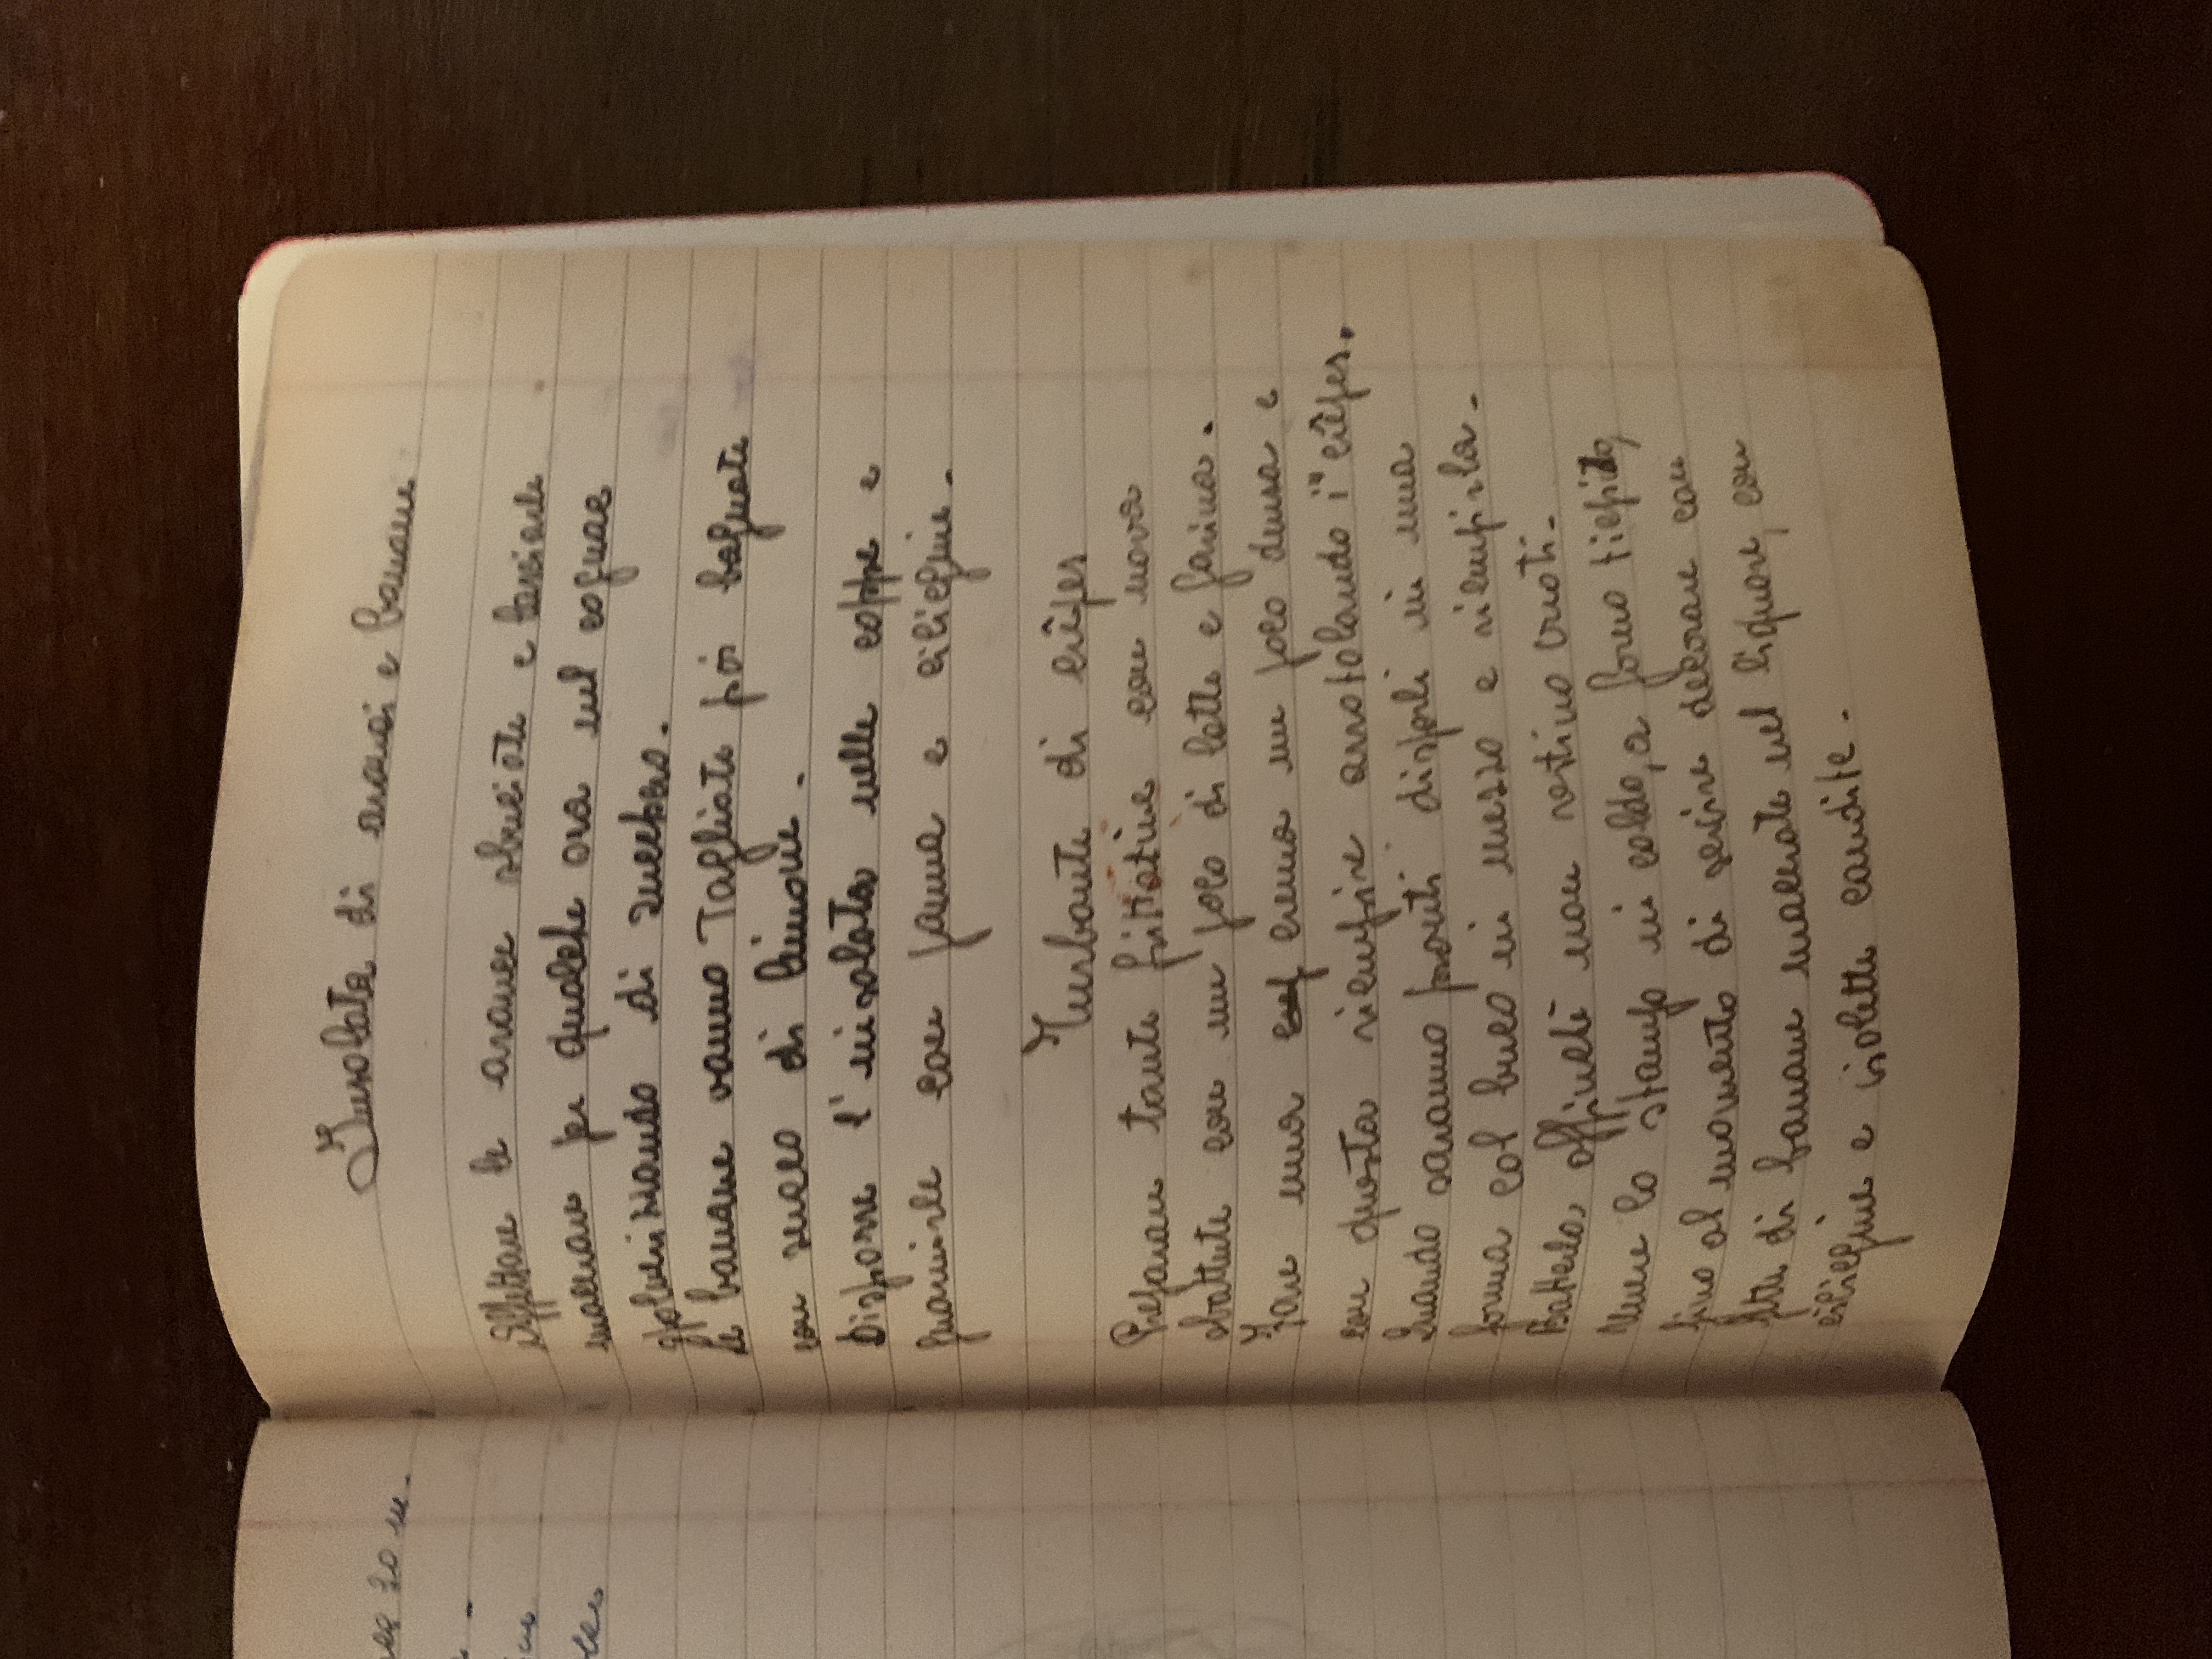 20 m.
Insalata di aranci e banane
Affettare le arance sbucciate e lasciarle
macerare per qualche ora nel cognac
spolverizzando di zucchero.
Le banane vanno Tagliate poi bagnate
con succo di limone.
Disporre l'insalata nelle coppe e
guarnirle con panna e ciliegine.
Turbante di crêpes
Preparare tante frittatine con uova
sbattute con un poco di latte e farina.
Fare una crema un poco densa e
con questa riempire arrotolando i "crêpes.
Quando saranno pronti disporli in una
forma col buco in mezzo e riempirla.
Batterla affinché non restino vuoti.
Tenere lo stampo in caldo, a forno tiepido,
fino al momento di servire decorare con
fette di banane macerate nel liquore, con
ciliegine e violette candite.